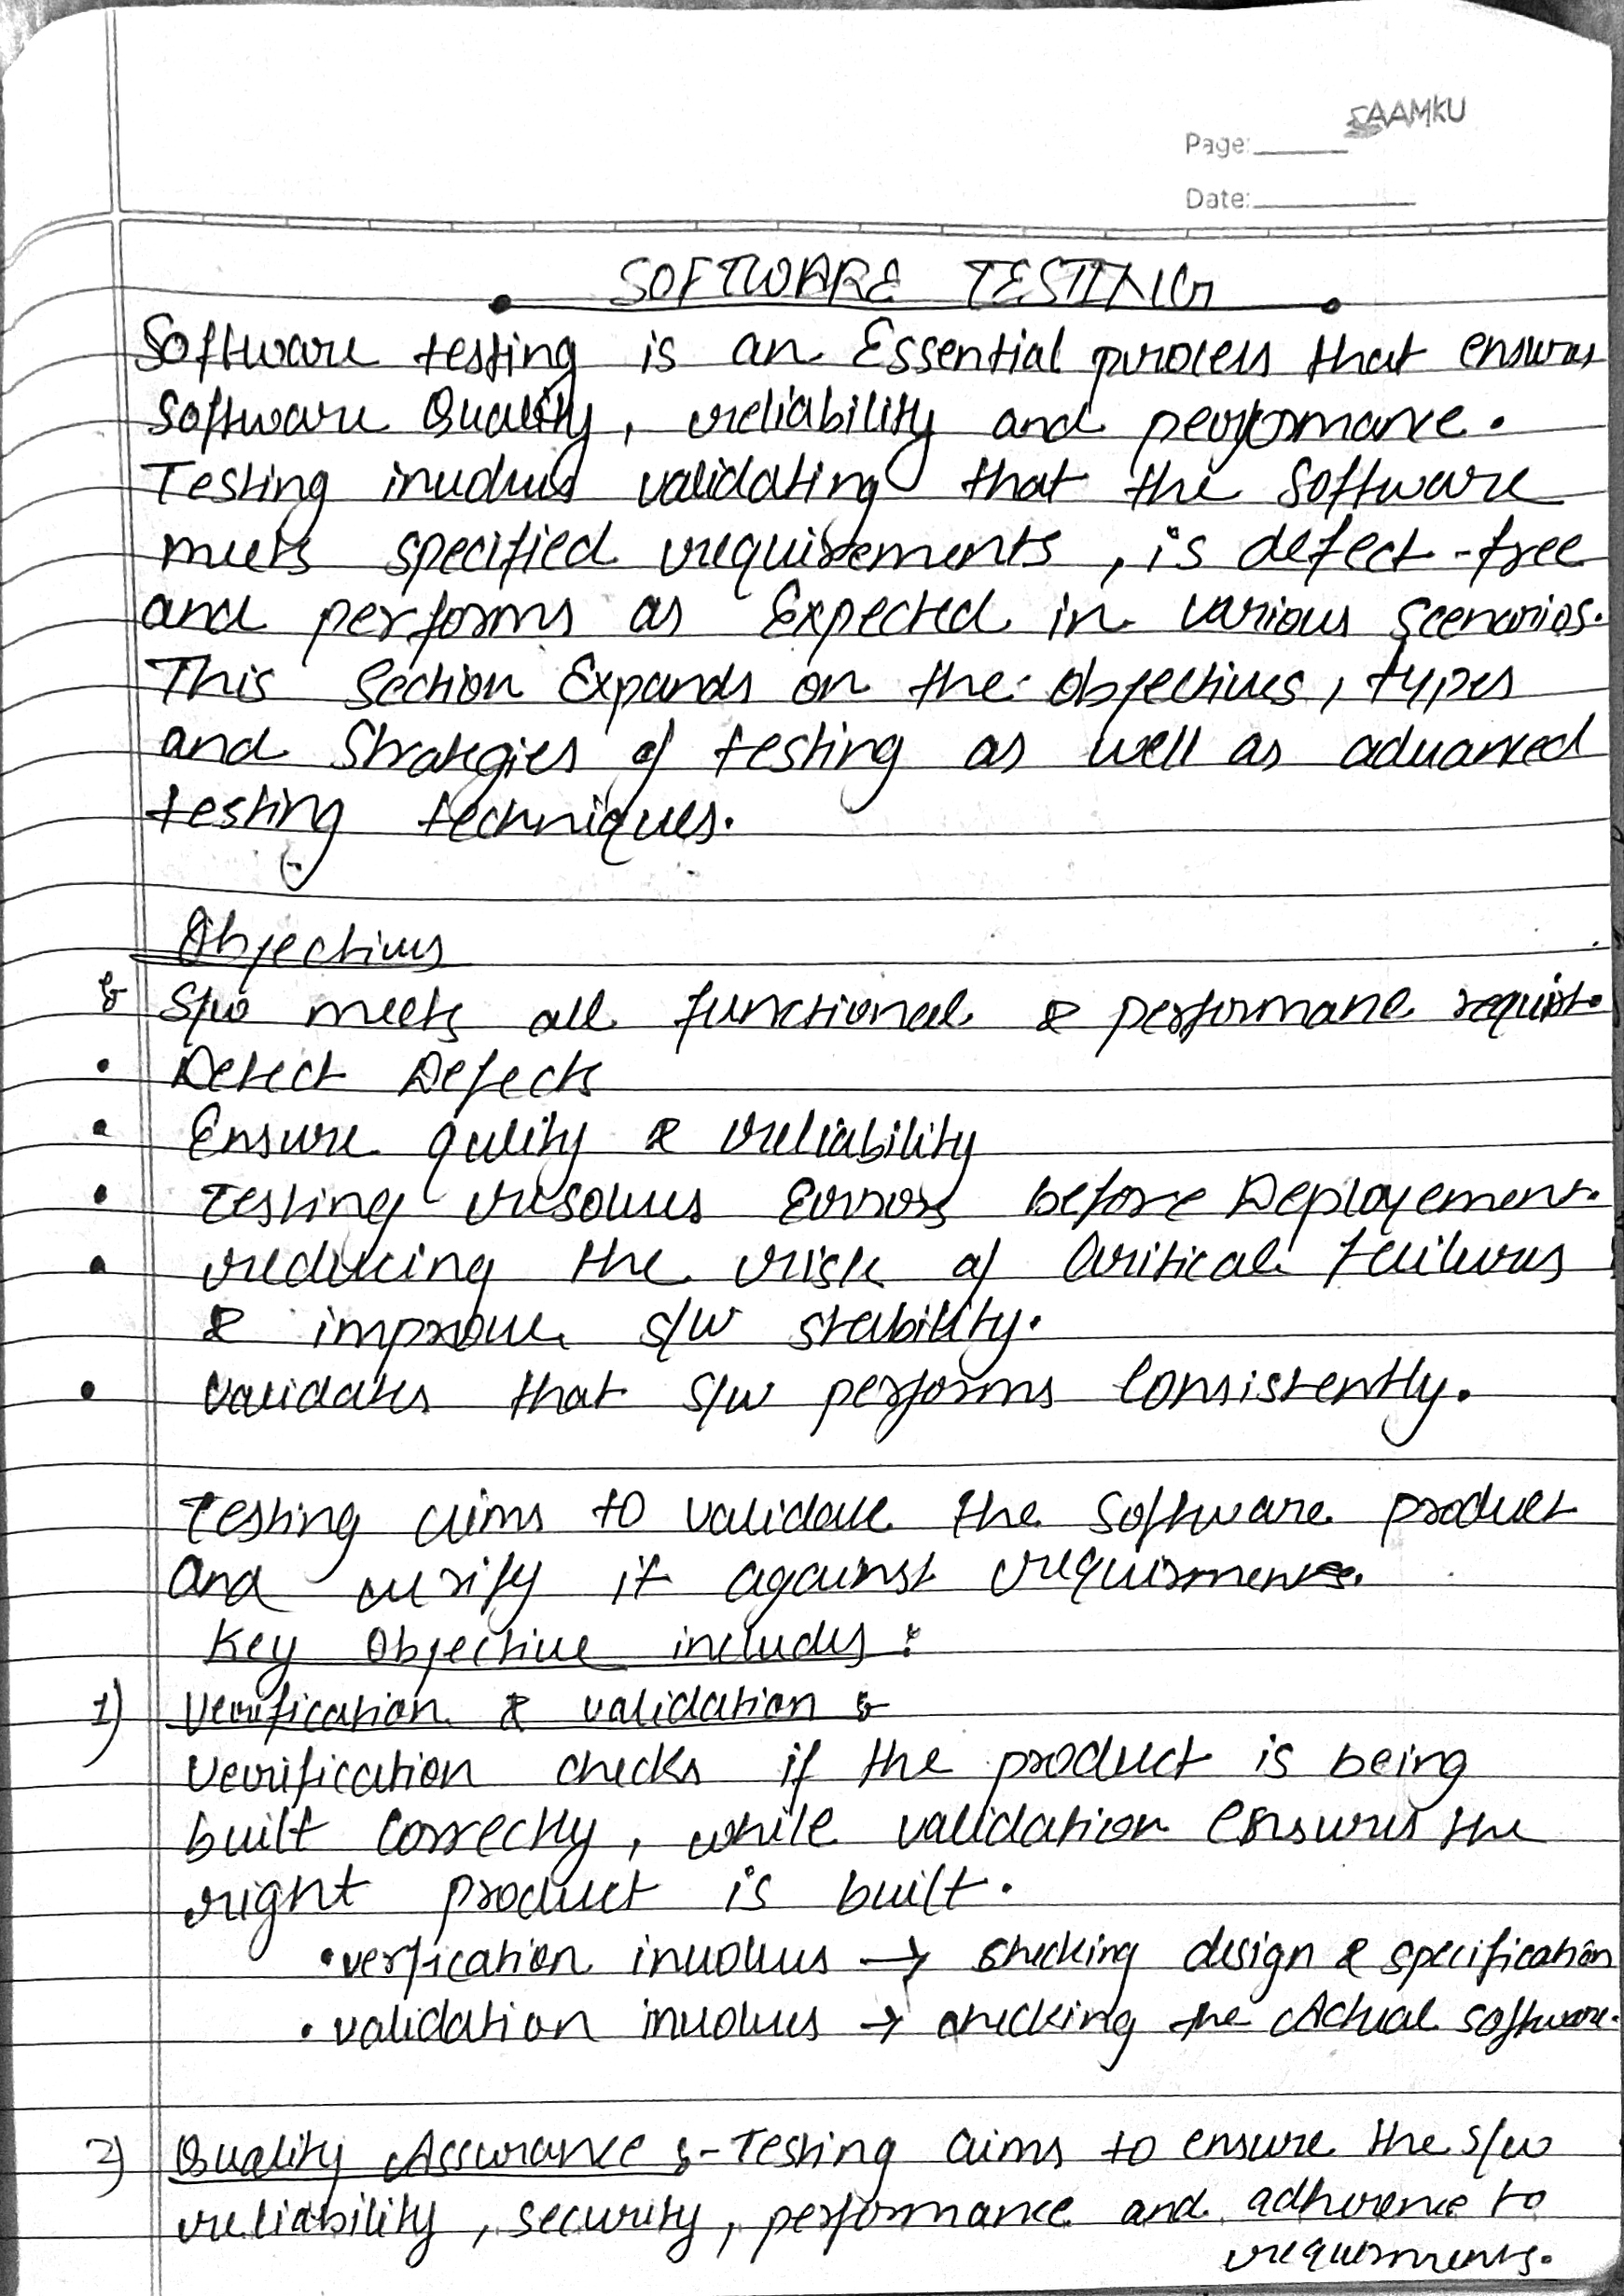 SAAMKU
Page:
Date:
SOFTWARE TESTING
Software testing is an Essential process that ensures
Software Quality, reliability and performance.
Testing involves validating that the software
meets specified requirements, is defect-free
and performs as Expected in various scenarios.
This Section Expands on the objectives, types
and Strategies of testing as well as advanced
testing techniques.
Objectives
S/w meets all functional & performance requirt.
• Detect Defects
• Ensure qulity & reliability
• Testing resolves Errors before Deployement.
• reducing the risk of Critical failures
& improve s/w stability.
• Validates that S/w performs Consistently.
Testing aims to validate the Software product
and verify it against requirments.
Key Objective includes:
1) Verification & validation :
Verification checks if the product is being
built Correctly, while validation Ensures the
right product is built.
• verfication involves → checking design & specification
• validation involves → checking the Actual software.
2) Quality Assurance :- Testing aims to ensure the s/w
reliability, security, performance and adherence to
requirments.